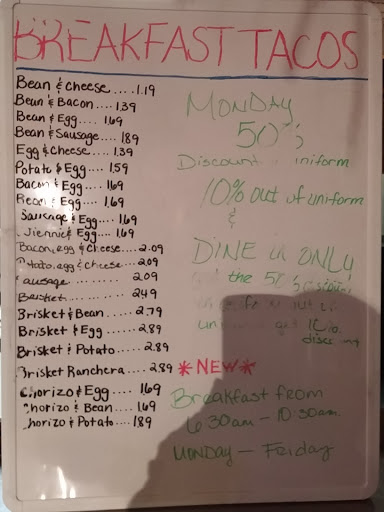 BREAKFAST TACOS
Bean & Cheese ....1.19
Bean & Bacon .... 1.39
Bean & Egg.... 1.69
Bean & Sausage.... 1.89
Egg & Cheese.... 1.39
Potato & Egg .... 1.59
Bacon & Egg .... 1.69
& Egg.... 1.69
Sausage & Egg....1.69
& Egg.... 1.69
Bacon, egg & Cheese.... 2.09
egg & Cheese.... 2.09
ausage ......... 2.09
Brisket ......... 2.49
Brisket & Bean..... 2.79
Brisket & Egg ..... 2.89
Brisket & Potato.....2.89
Brisket Ranchera.... 2.89
Chorizo & Egg .... 1.69
Chorizo & Bean .... 1.69
Chorizo & Potato.... 1.89
MONDAY
50%
Discount uniform
10% out of uniform
&
DINE in ONLY
the 50%
10%
discount
*NEW*
Breakfast from
6:30am - 10:30am
MONDAY - Friday